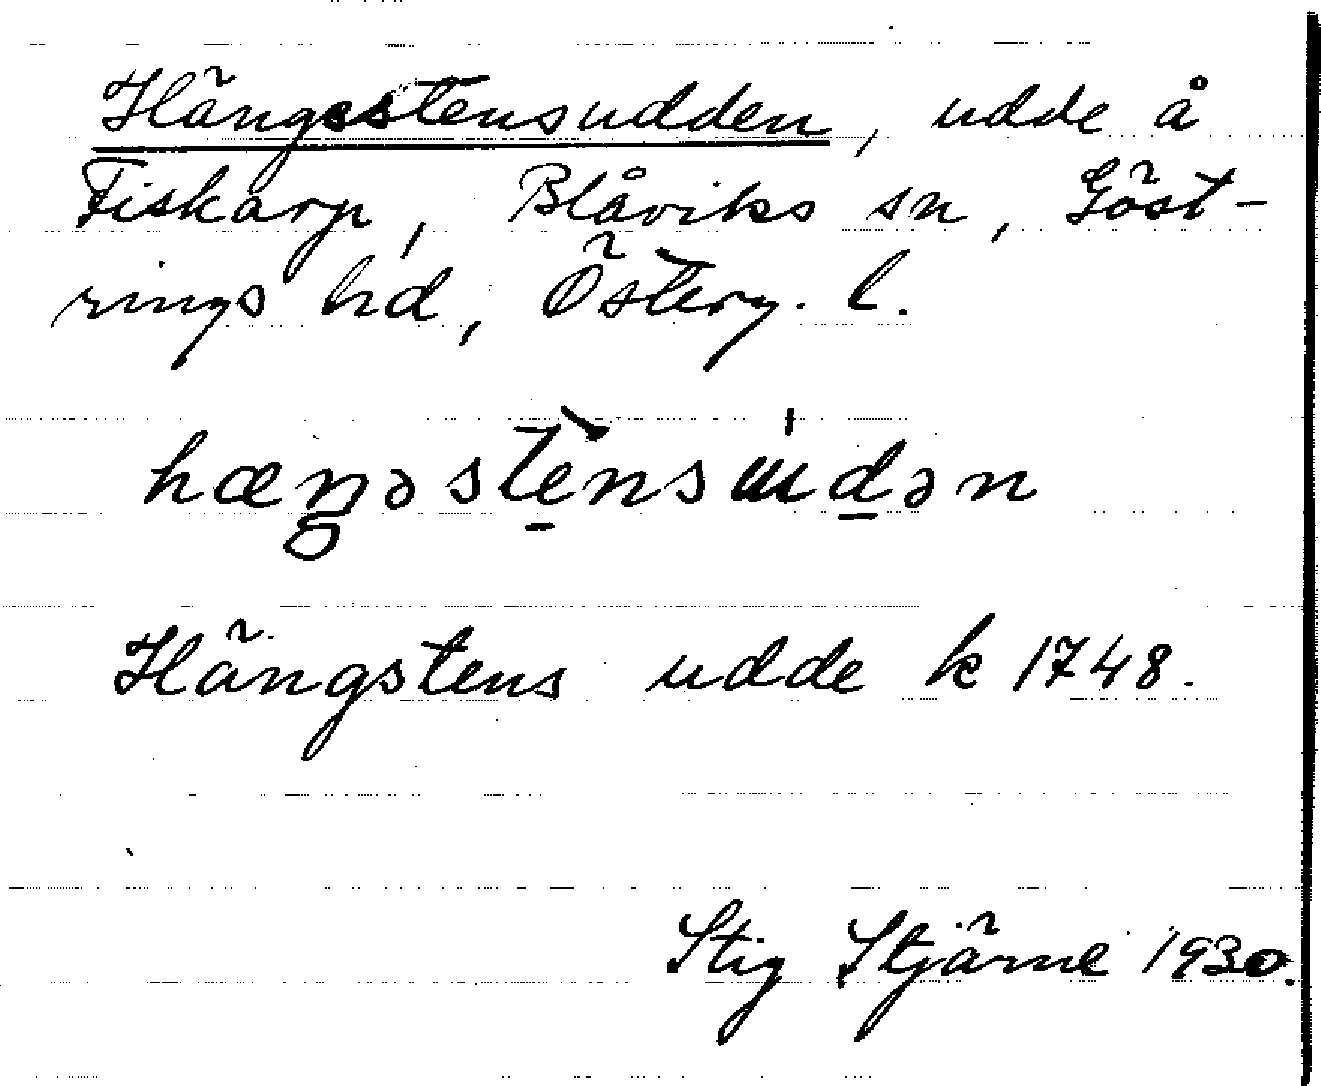 Hängestensudden, udde å
Fiskarp, Blåviks sn, Göst-
rings hd, Österg. l.
hæŋəste̠nsɯd̠ən
Hängstens udde k 1748.
Stig Stjärne 1930.